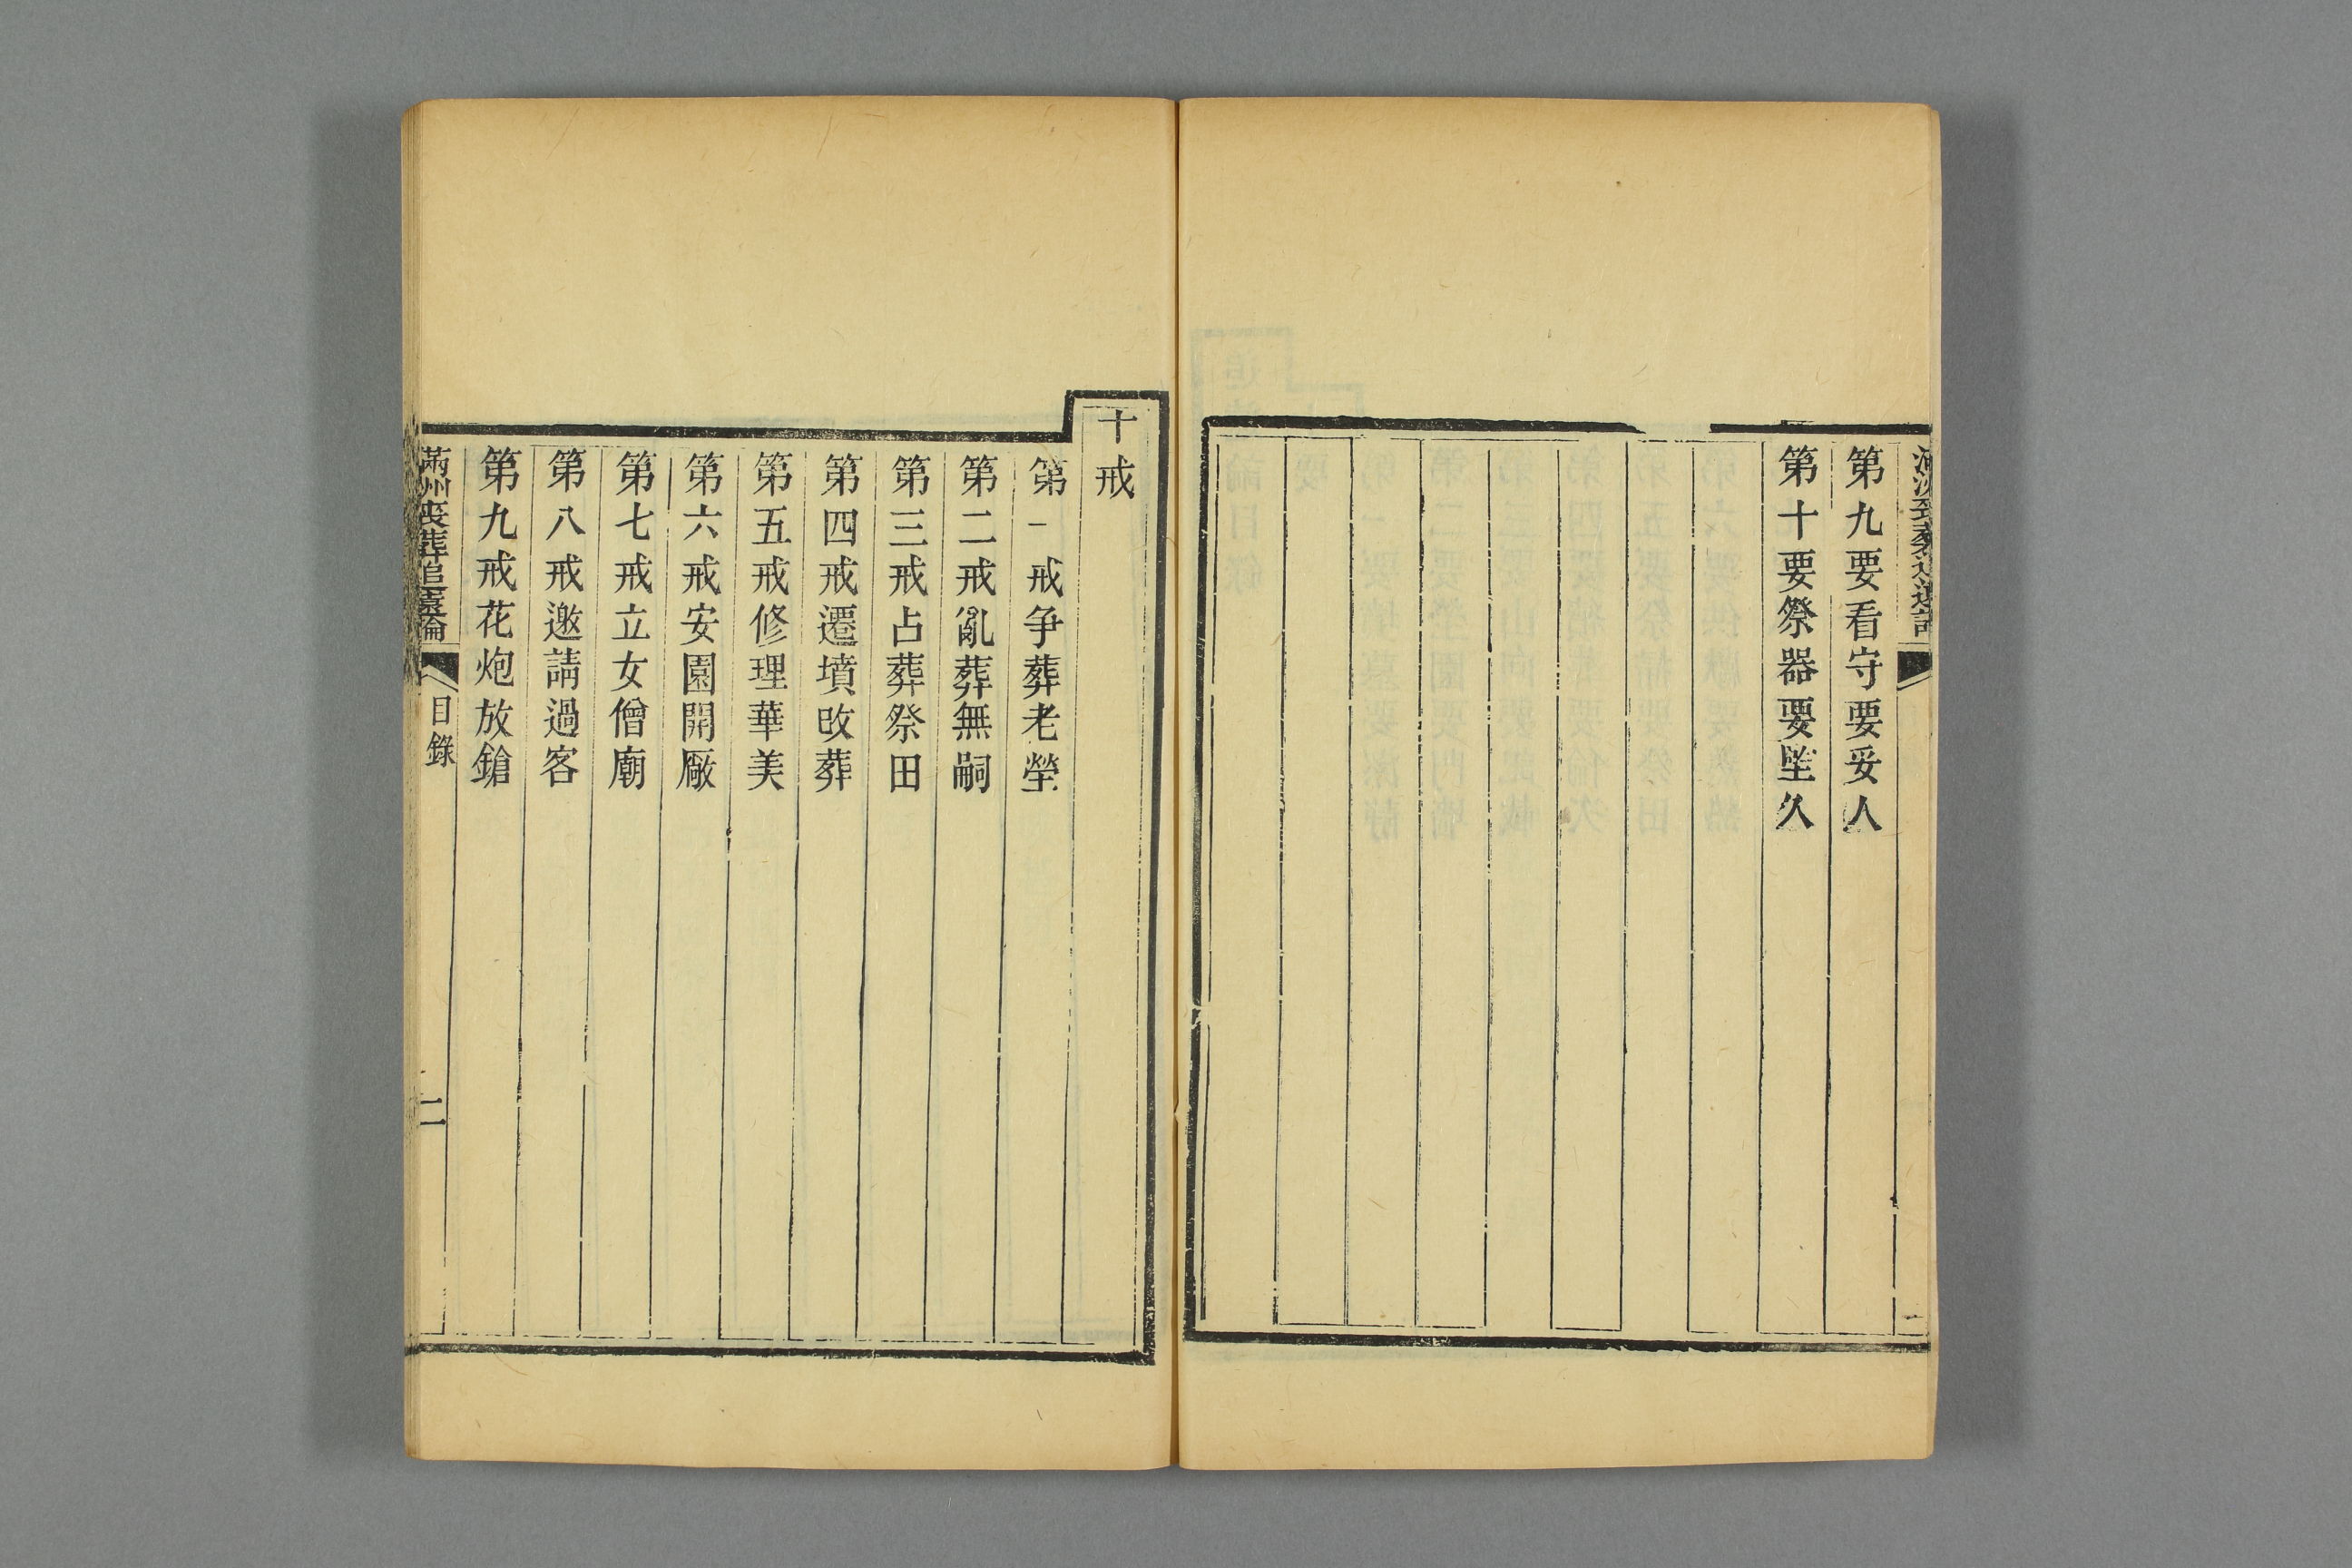 第九要看守要妥人
第十要祭器要坚久
十戒
第一戒争葬老塋
第二戒亂葬無嗣
第三戒占葬祭田
第四戒遷墳改葬
第五戒修理華美
第六戒安園開厰
第七戒立女僧廟
第八戒邀請過客
第九戒花炮放鎗
滿州喪葬追遠論
目錄
二